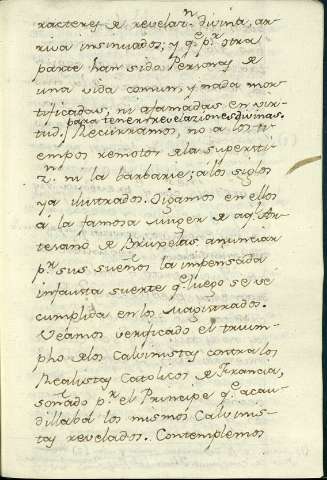 racteres de revelaz.n divina, ar-
riva insinuados; y q.e p.r otra
parte han sido Personas de
una vida comun, y nada mor-
tificadas, ni afamadas en vir-
para tener revelaciones divinas.
tud. Recurramos, no a los ti-
empos remotos de la superstiz.n
ni la barbarie; á los siglos
ya ilustrados. Oigamos en ellos
á la famosa muger de aq.l Ar-
tesano de Bruxelas anunciar
p.r sus sueños la impensada
infausta suerte q.e luego se vé
cumplida en los Magistrados.
Veámos verificado el trium-
pho de los Calvinistas contra los
Realistas Catolicos de Francia,
soñado p.r el Principe q.e acau-
dillaba los mismos Calvinis-
tas revelados. Contemplemos